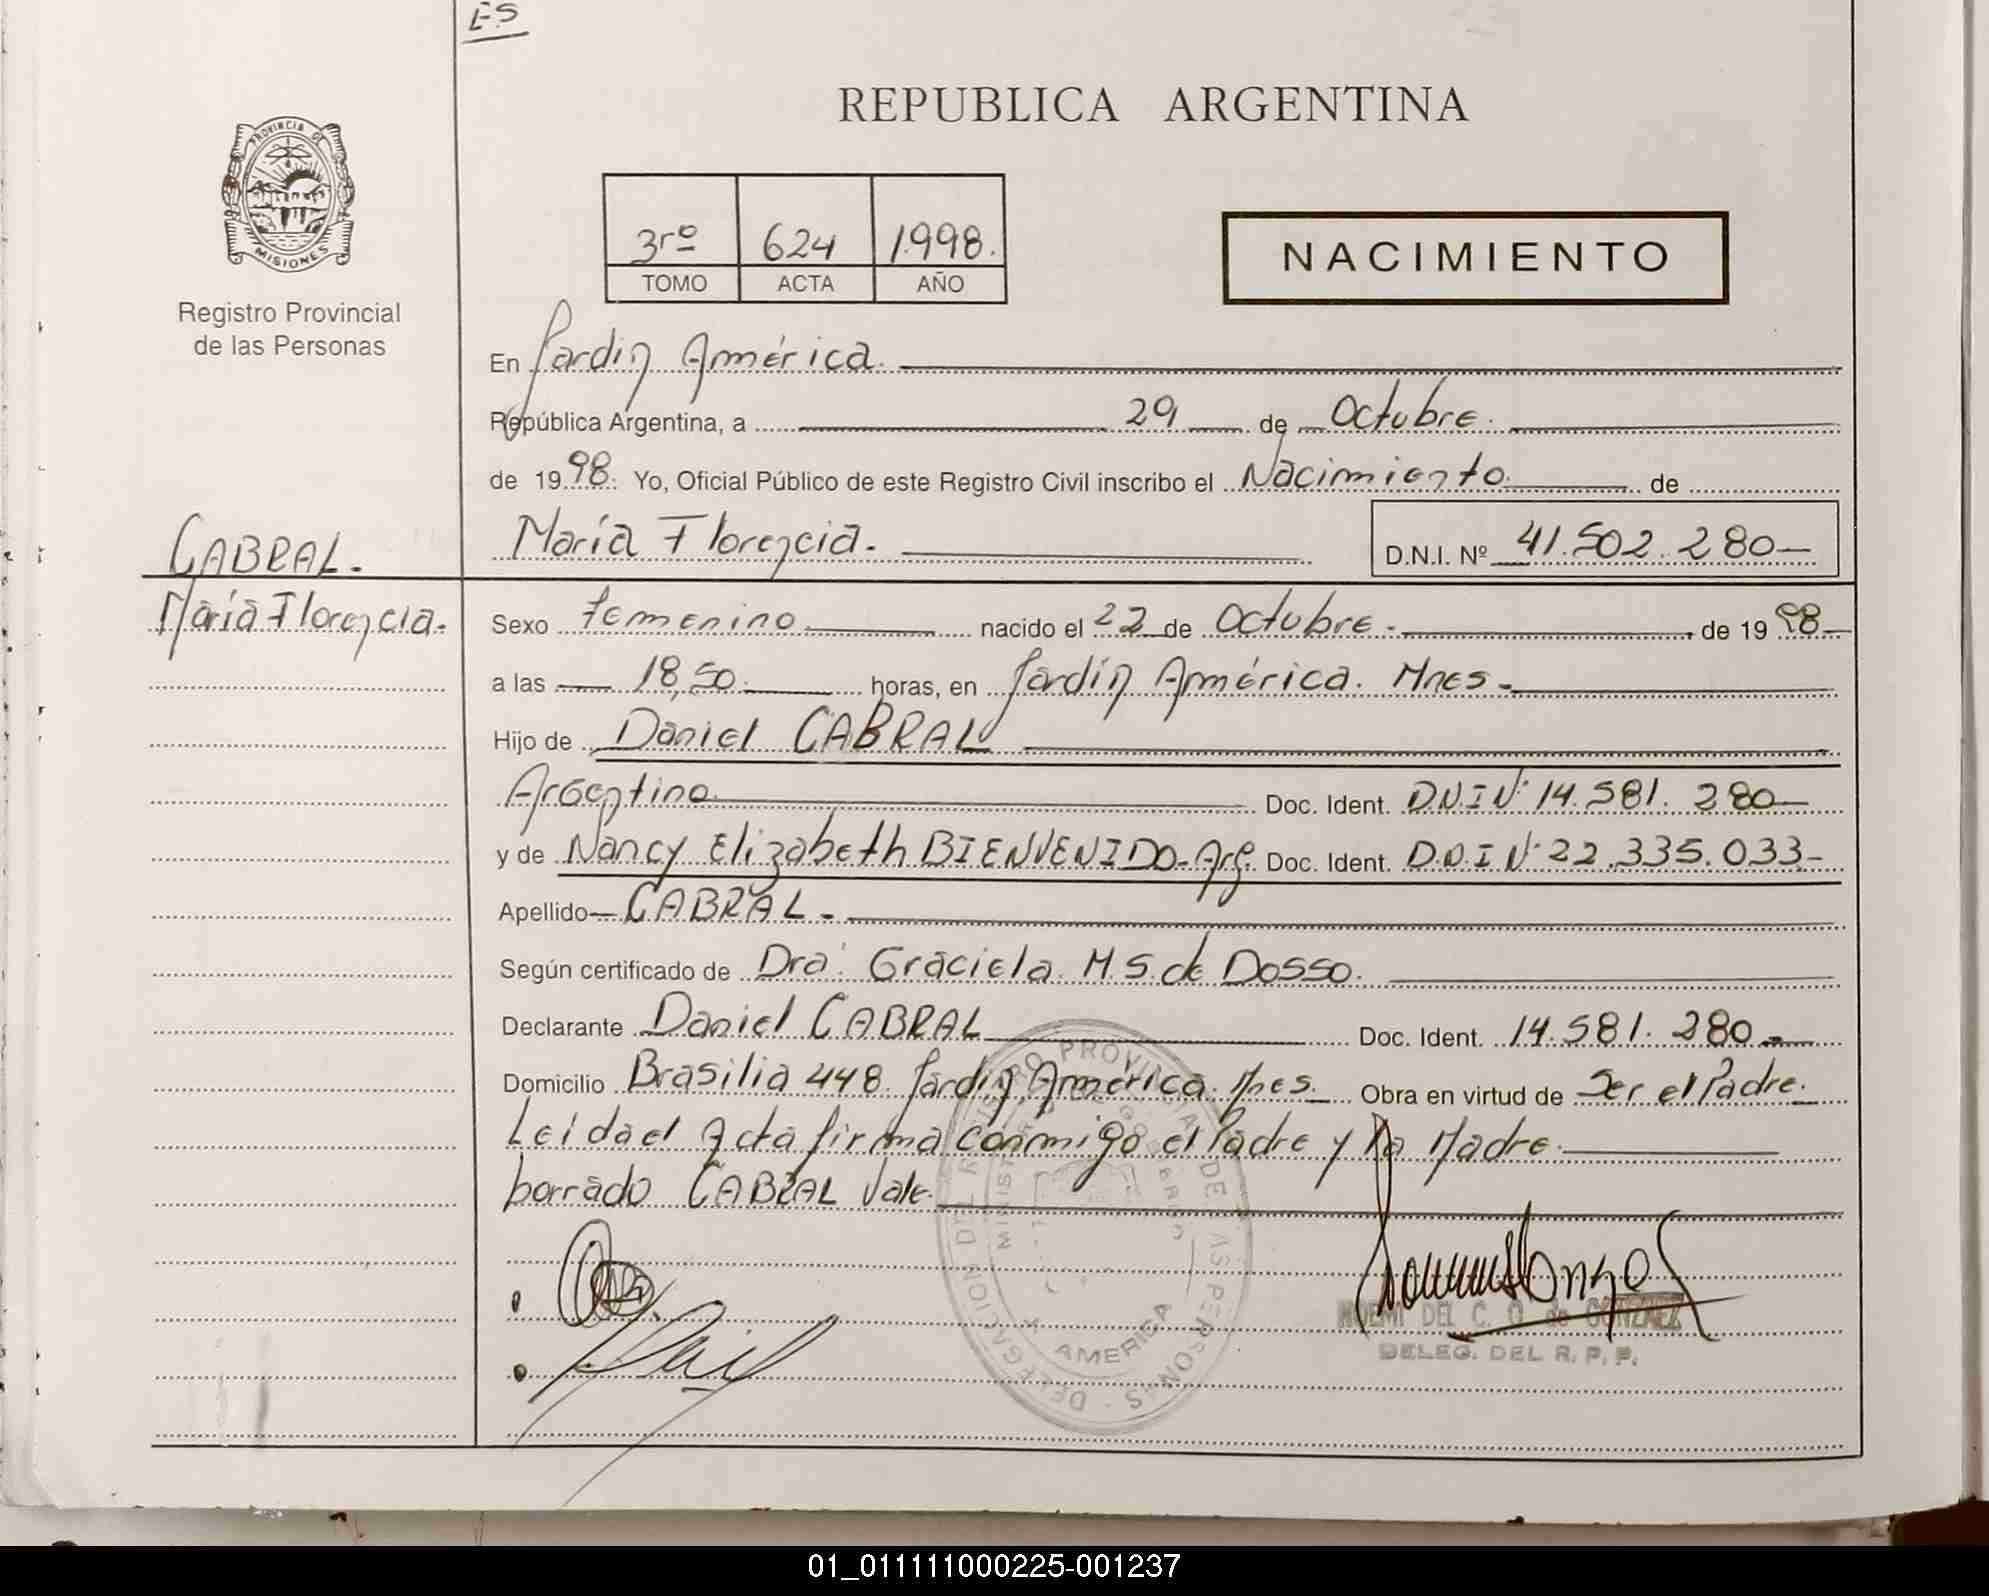 ES
REPUBLICA ARGENTINA
PROVINCIA DE
MISIONES
Registro Provincial
de las Personas
3ro 624 1.998.
TOMO ACTA AÑO
NACIMIENTO
En Jardín América.
República Argentina, a 29 de Octubre.
de 1998. Yo, Oficial Público de este Registro Civil inscribo el Nacimiento de
CABRAL.-
María Florencia.
María Florencia.- D.N.I. Nº 41.502.280—
Sexo femenino nacido el 22 de Octubre.- de 1998—
a las 18,50. horas, en Jardín América. Mnes-
Hijo de Daniel CABRAL
Argentino. Doc. Ident. D.N.I Nº 14.581.280—
y de Nancy Elizabeth BIENVENIDO-Arg. Doc. Ident. D.N.I Nº 22.335.033-
Apellido— CABRAL-
Según certificado de Dra. Graciela M.S. de Dosso.
Declarante Daniel CABRAL Doc. Ident. 14.581.280-
Domicilio Brasilia 448. Jardín América. Mnes. Obra en virtud de Ser el Padre.
Leída el Acta firma conmigo el Padre y la Madre.
borrado CABRAL Vale.
DELEGACION DEL REGISTRO PROVINCIAL DE LAS PERSONAS
AMERICA
NOEMI DEL C. O. de GONZALEZ
DELEG. DEL R. P. P.
01_011111000225-001237